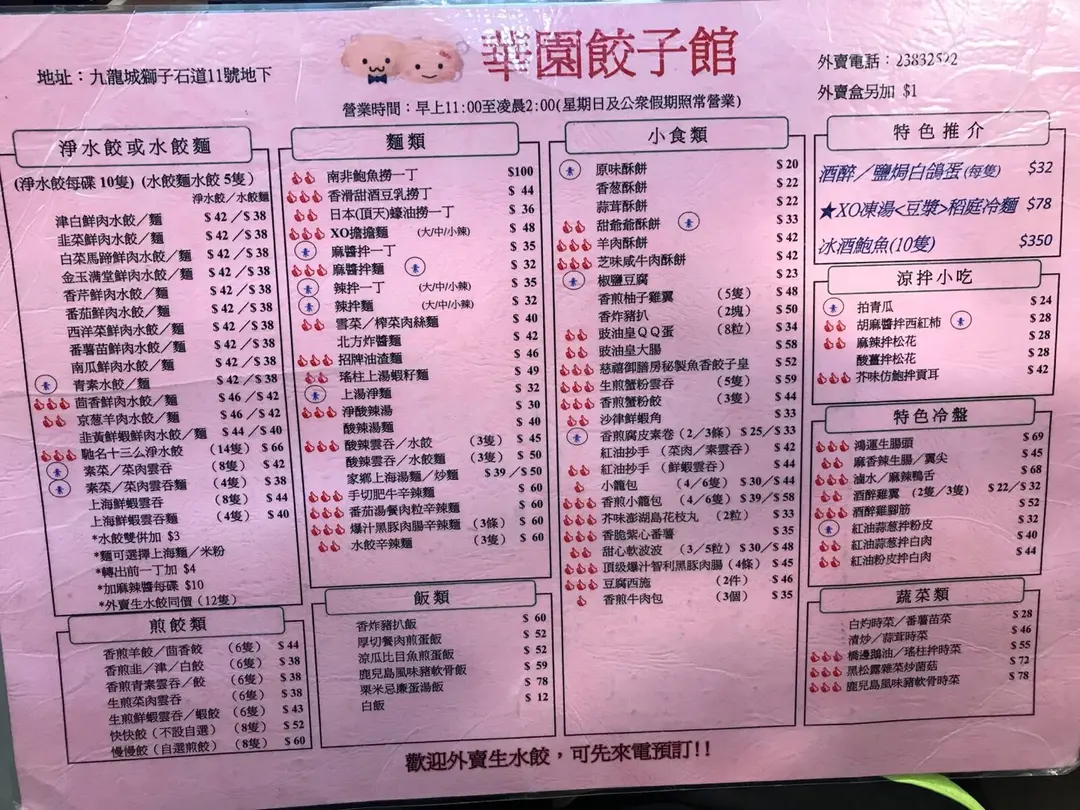 華園餃子館
地址：九龍城獅子石道11號地下
外賣電話：23832522
外賣盒另加 $1
營業時間：早上11:00至凌晨2:00(星期日及公衆假期照常營業)
淨水餃或水餃麵
(淨水餃每碟 10隻) (水餃麵水餃 5隻)
淨水餃/水餃麵
津白鮮肉水餃／麵 $ 42 ／$ 38
韭菜鮮肉水餃／麵 $ 42 ／$ 38
白菜馬蹄鮮肉水餃／麵 $ 42 ／$ 38
金玉满堂鮮肉水餃／麵 $ 42 ／$ 38
香芹鮮肉水餃／麵 $ 42 ／$ 38
番茄鮮肉水餃／麵 $ 42 ／$ 38
西洋菜鮮肉水餃／麵 $ 42 ／$ 38
番薯苗鮮肉水餃／麵 $ 42 ／$ 38
南瓜鮮肉水餃／麵 $ 42 ／$ 38
素 青素水餃／麵 $ 42 ／$ 38
茴香鮮肉水餃／麵 $ 46 ／$ 42
京葱羊肉水餃／麵 $ 46 ／$ 42
韭黃鮮蝦鮮肉水餃／麵 $ 44 ／$ 40
馳名十三么淨水餃 (14隻) $ 66
素 素菜／菜肉雲吞 (8隻) $ 42
素 素菜／菜肉雲吞麵 (4隻) $ 38
上海鮮蝦雲吞 (8隻) $ 44
上海鮮蝦雲吞麵 (4隻) $ 40
*水餃雙併加 $3
*麵可選擇上海麵／米粉
*轉出前一丁加 $4
*加麻辣醬每碟 $10
*外賣生水餃同價（12隻）
煎餃類
香煎羊餃／茴香餃 (6隻) $ 44
香煎韭／津／白餃 (6隻) $ 38
香煎青素雲吞／餃 (6隻) $ 38
生煎菜肉雲吞 (6隻) $ 38
生煎鮮蝦雲吞／蝦餃 (6隻) $ 43
快快餃（不設自選） (8隻) $ 52
慢慢餃（自選煎餃） (8隻) $ 60
麵類
南非鮑魚撈一丁 $100
香滑甜酒豆乳撈丁 $ 44
日本(頂天)蠔油撈一丁 $ 36
XO擔擔麵 (大/中/小辣) $ 48
素 麻醬拌一丁 $ 35
麻醬拌麵 素 $ 32
素 辣拌一丁 (大/中/小辣) $ 35
素 辣拌麵 (大/中/小辣) $ 32
雪菜／榨菜肉絲麵 $ 40
北方炸醬麵 $ 42
招牌油渣麵 $ 46
瑤柱上湯蝦籽麵 $ 49
素 上湯淨麵 $ 32
淨酸辣湯 $ 30
酸辣湯麵 $ 40
酸辣雲吞／水餃 (3隻) $ 45
酸辣雲吞／水餃麵 (3隻) $ 50
家鄉上海湯麵／炒麵 $ 39 ／$ 50
手切肥牛辛辣麵 $ 60
番茄湯餐肉粒辛辣麵 $ 60
爆汁黑豚肉腸辛辣麵 (3條) $ 60
水餃辛辣麵 (3隻) $ 60
飯類
香炸豬扒飯 $ 60
厚切餐肉煎蛋飯 $ 52
涼瓜比目魚煎蛋飯 $ 52
鹿兒島風味豬軟骨飯 $ 59
粟米忌廉蛋湯飯 $ 78
白飯 $ 12
小食類
素 原味酥餅 $ 20
香葱酥餅 $ 22
蒜茸酥餅 $ 22
甜爺爺酥餅 素 $ 33
羊肉酥餅 $ 44
芝味咸牛肉酥餅 $ 42
素 椒鹽豆腐 $ 23
香煎柚子雞翼 (5隻) $ 48
香炸豬扒 (2塊) $ 50
豉油皇ＱＱ蛋 (8粒) $ 34
豉油皇大腸 $ 58
慈禧御膳房秘製魚香餃子皇 $ 52
生煎蟹粉雲吞 (5隻) $ 59
香煎蟹粉餃 (3隻) $ 44
沙律鮮蝦角 $ 33
素 香煎腐皮素卷（2／3條） $ 25／$ 33
紅油抄手（菜肉／素雲吞） $ 42
紅油抄手（鮮蝦雲吞） $ 44
小籠包 (4／6隻) $ 30／$ 44
香煎小籠包 (4／6隻) $ 39／$ 58
芥味澎湖島花枝丸 (2粒) $ 33
香脆紫心番薯 $ 35
甜心軟波波 (3／5粒) $ 30／$ 48
頂級爆汁智利黑豚肉腸 (4條) $ 45
豆腐西施 (2件) $ 46
香煎牛肉包 (3個) $ 35
特色推介
酒醉／鹽焗白鴿蛋(每隻) $32
★XO凍湯<豆漿>稻庭冷麵 $78
冰酒鮑魚(10隻) $350
涼拌小吃
素 拍青瓜 $ 24
胡麻醬拌西紅柿 素 $ 28
麻辣拌松花 $ 28
酸薑拌松花 $ 28
芥味仿鮑拌貢耳 $ 42
特色冷盤
鴻運生腸頭 $ 69
麻香辣生腸／翼尖 $ 45
滷水／麻辣鴨舌 $ 68
酒醉雞翼 (2隻／3隻) $ 22／$ 32
酒醉雞腳筋 $ 52
素 紅油蒜葱拌粉皮 $ 32
紅油蒜葱拌白肉 $ 40
紅油粉皮拌白肉 $ 44
蔬菜類
白灼時菜／番薯苗菜 $ 28
清炒／蒜茸時菜 $ 46
橋邊鵝油／瑤柱拌時菜 $ 55
黑松露雜菜炒菌菇 $ 72
鹿兒島風味豬軟骨時菜 $ 78
歡迎外賣生水餃，可先來電預訂!!